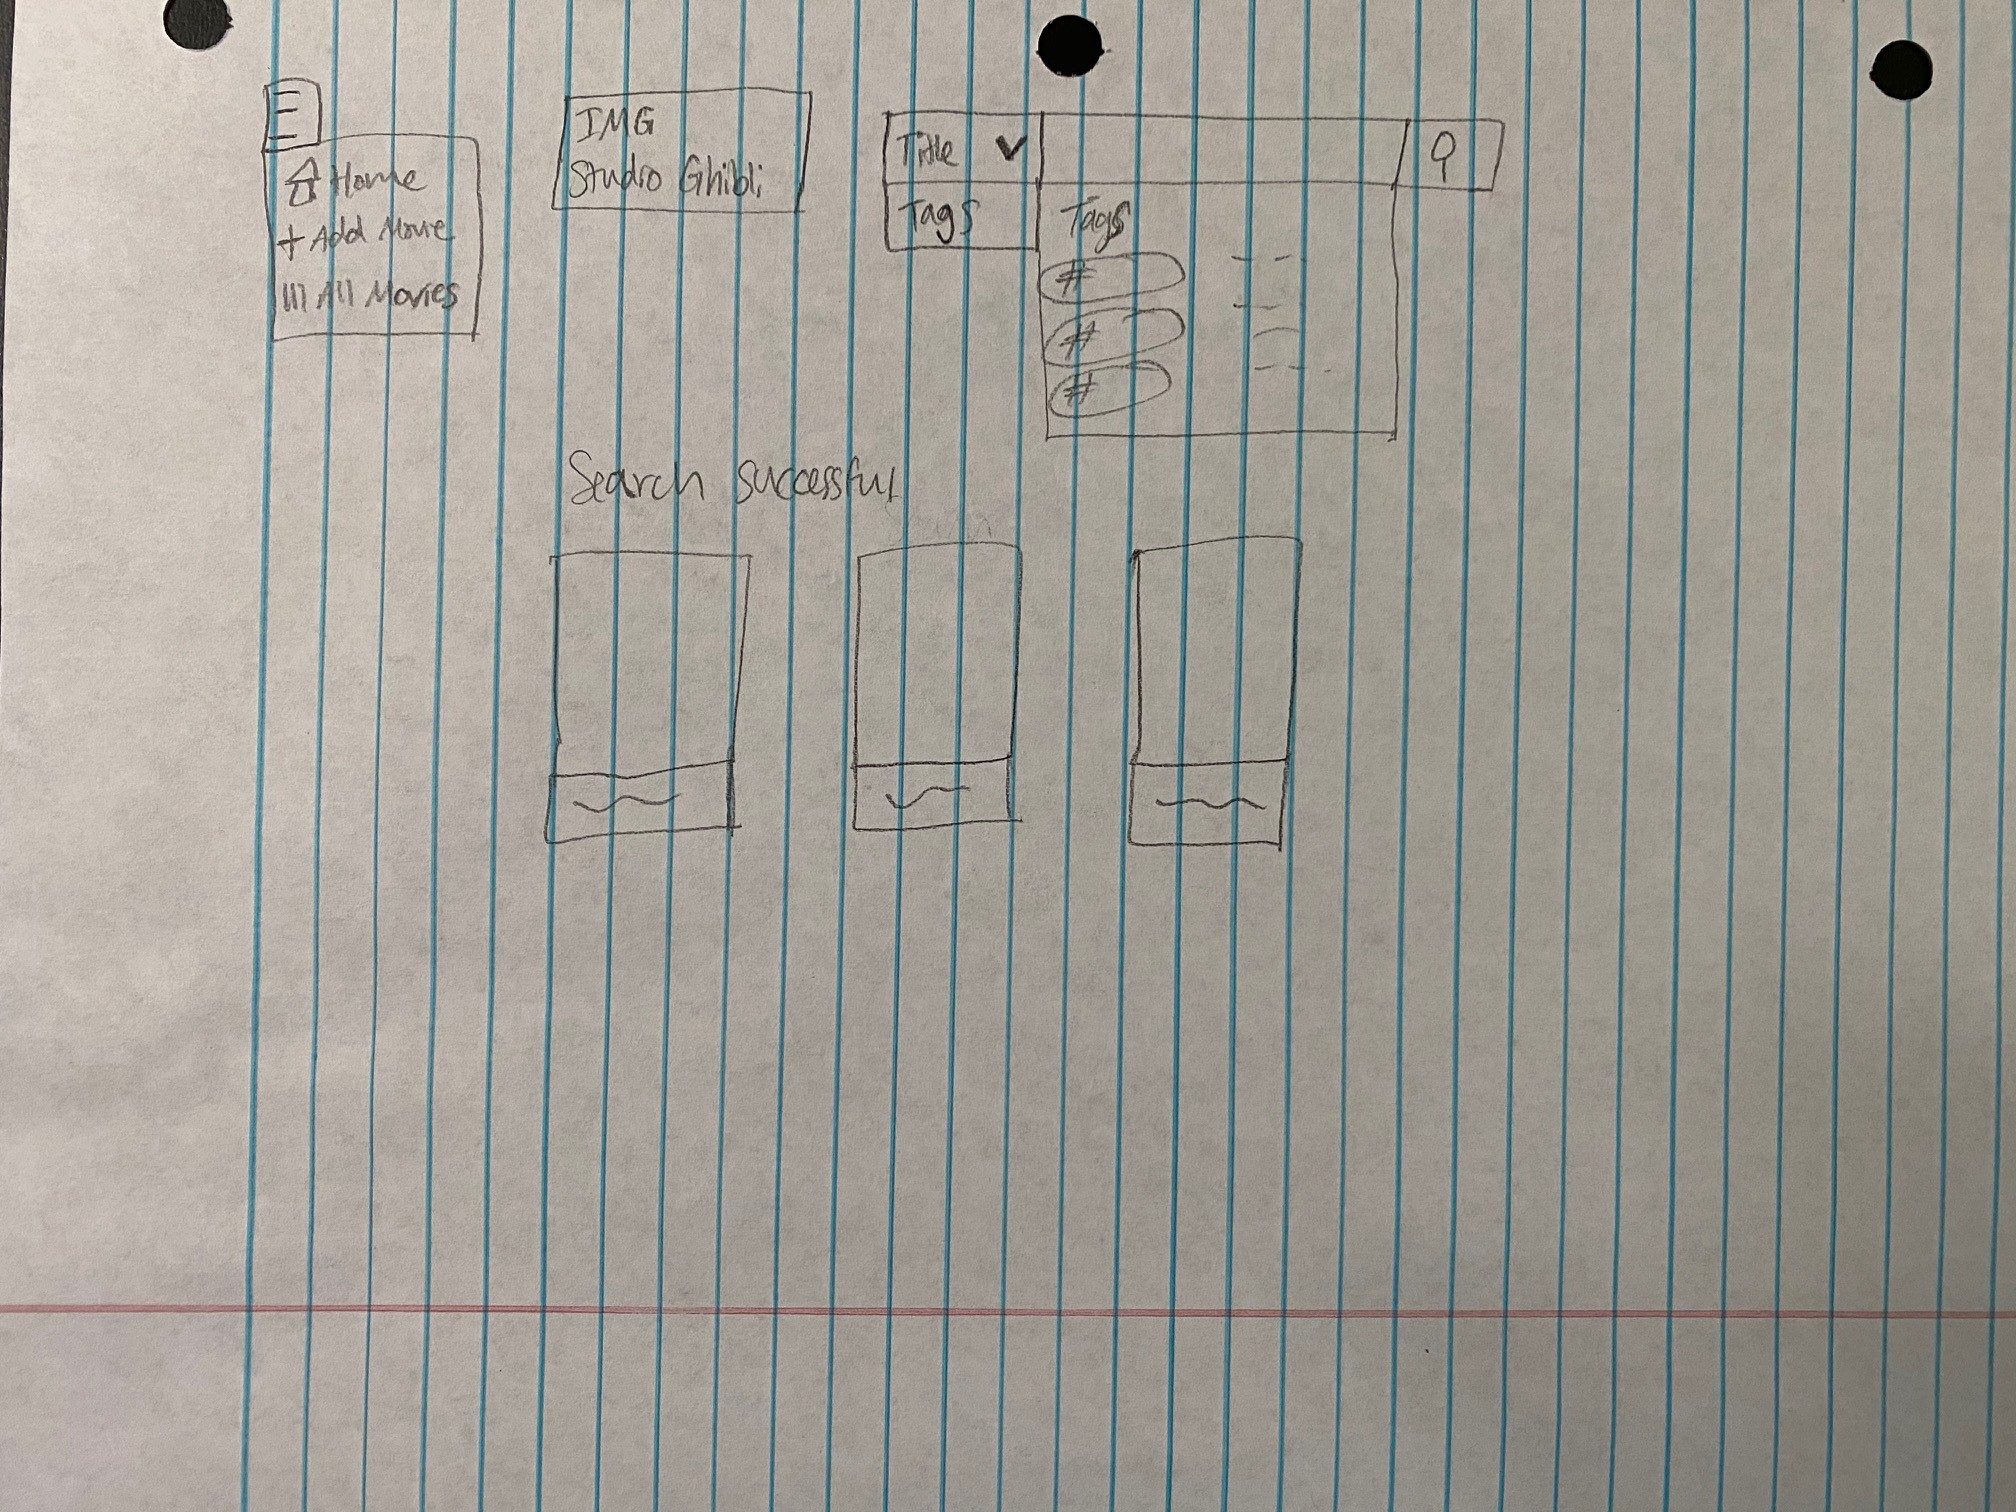 Home
+ Add Movie
All Movies
IMG
Studio Ghibli
Title
Tags
Tags
#
#
#
Search successful